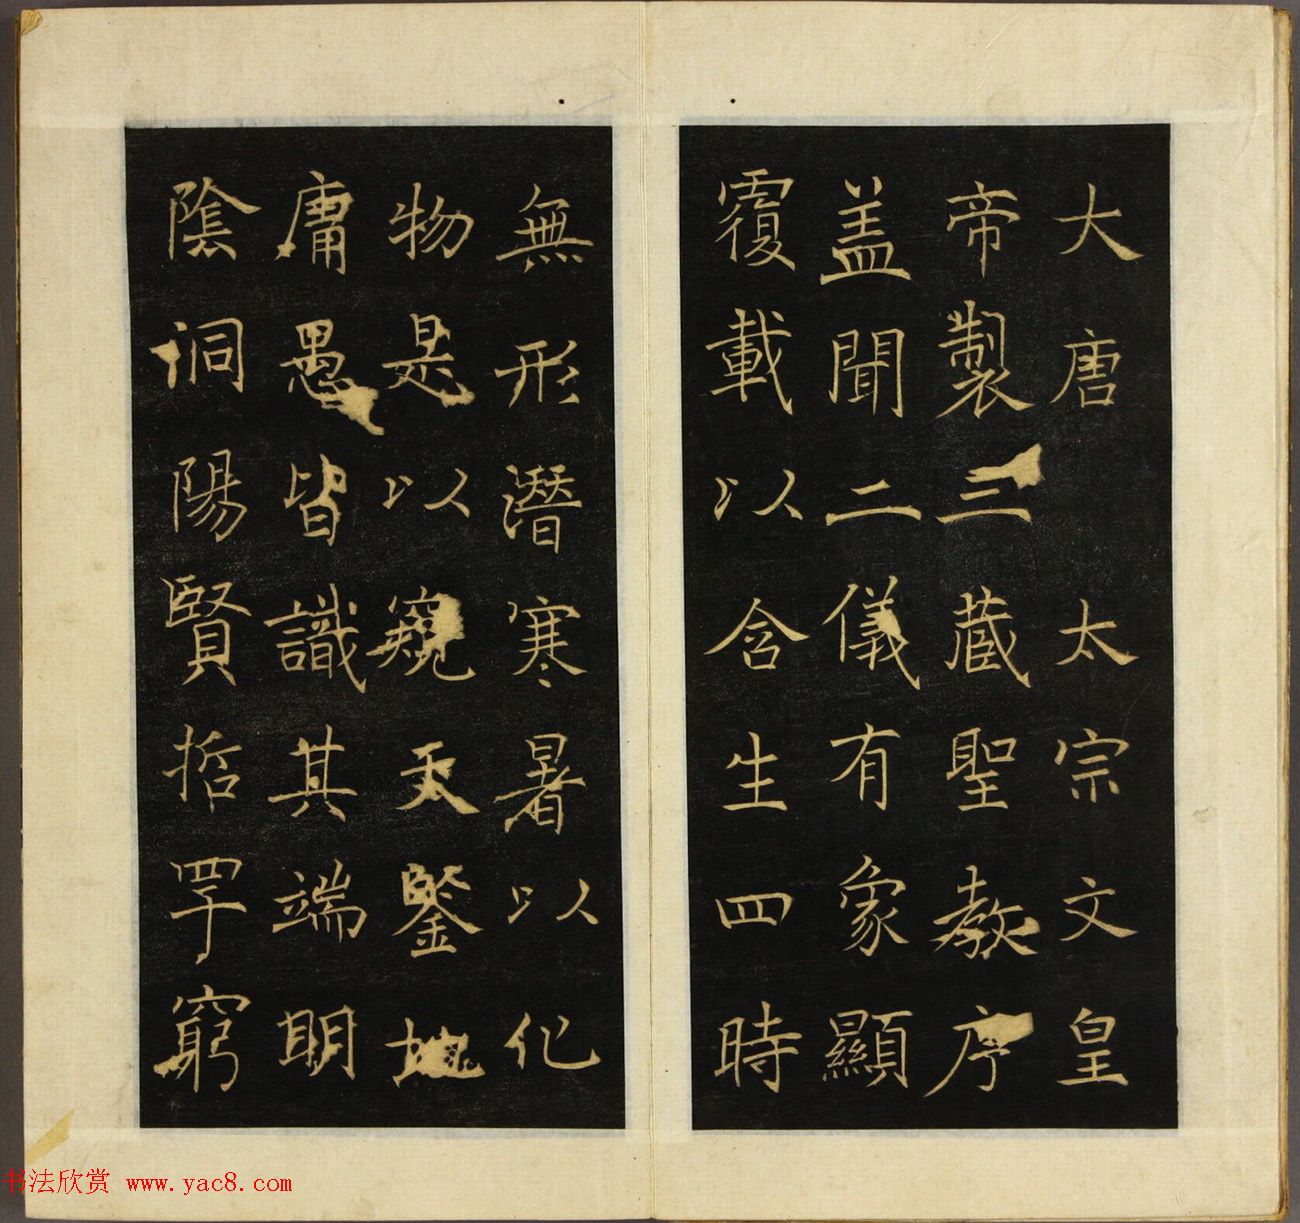 大唐太宗文皇
帝製三藏聖教序
盖聞二儀有象顯
覆載以含生四時
無形潛寒暑以化
物是以窺天鑒地
庸愚皆識其端明
陰洞陽賢哲罕窮
书法欣赏 www.yac8.com